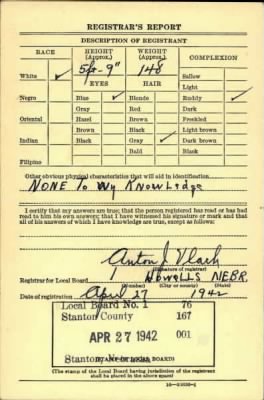 REGISTRAR'S REPORT
DESCRIPTION OF REGISTRANT
RACE HEIGHT (Approx.) WEIGHT (Approx.) COMPLEXION
5ft-9" 148
White ✓ EYES HAIR Sallow
Light
Negro Blue ✓ Blonde Ruddy ✓
Gray Red Dark
Oriental Hazel Brown Freckled
Brown Black Light brown
Indian Black Gray ✓ Dark brown
Bald Black
Filipino
Other obvious physical characteristics that will aid in identification
NONE To My Knowledge
I certify that my answers are true; that the person registered has read or has had
read to him his own answers; that I have witnessed his signature or mark and that
all of his answers of which I have knowledge are true, except as follows:
Anton J Vlach
(Signature of registrar)
Registrar for Local Board HOWELLS NEBR.
(Number) (City or county) (State)
Date of registration April 27 1942
Local Board No. 1 76
Stanton County 167
APR 27 1942 001
Stanton, Nebraska
(STAMP OF LOCAL BOARD)
(The stamp of the Local Board having jurisdiction of the registrant
shall be placed in the above space)